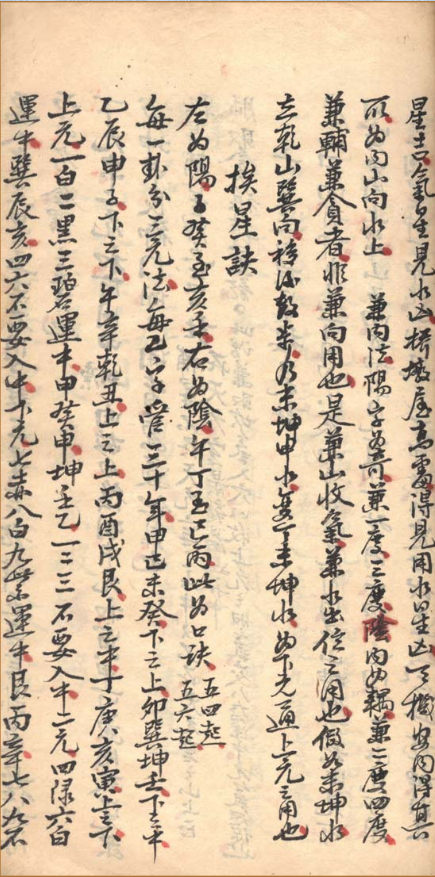 星吉氣生見水凶橫墩屋高處得見用水星凶天機安內得真
所為向山向水上 兼向法陽字為奇兼一度三度陰向為耦兼二度四度
兼輔兼貪者非兼向用也是兼山收氣兼水出位之用也假如未坤水
立乾山巽向乃未坤申水兼未坤水為下元通上元之用也
挨星訣
左為陽子癸至亥壬右為陰午丁至巳丙此為口訣 五四起 五六起
每一卦分三元法每一字管二十年甲巳未癸下之上卯巽坤壬下之中
乙辰申子下之下午辛乾丑上之上丙酉戌艮上之中丁庚亥寅上之下
上元一白二黑三碧運中甲癸申坤壬乙一二三不要入中中元四綠六白
運中巽辰亥四六不要入中下元七赤八白九紫運中艮丙辛七八九不